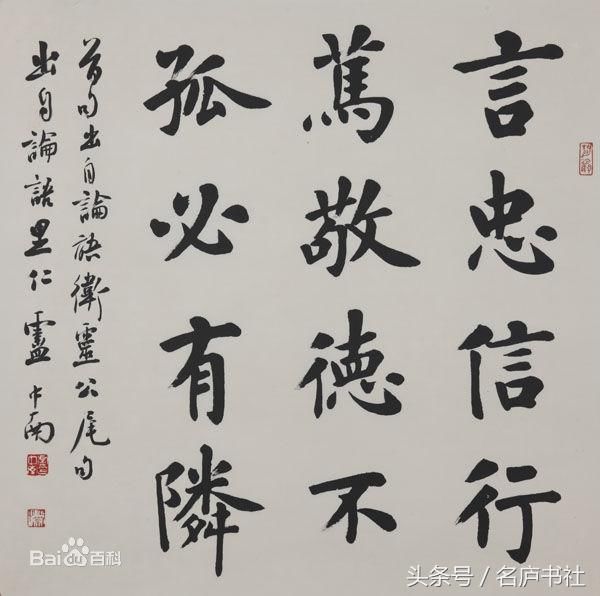 言忠信行
篤敬徳不
孤必有隣
首句出自論語衛靈公尾句
出自論語里仁盧中南
Bai百科
头条号 / 名庐书社